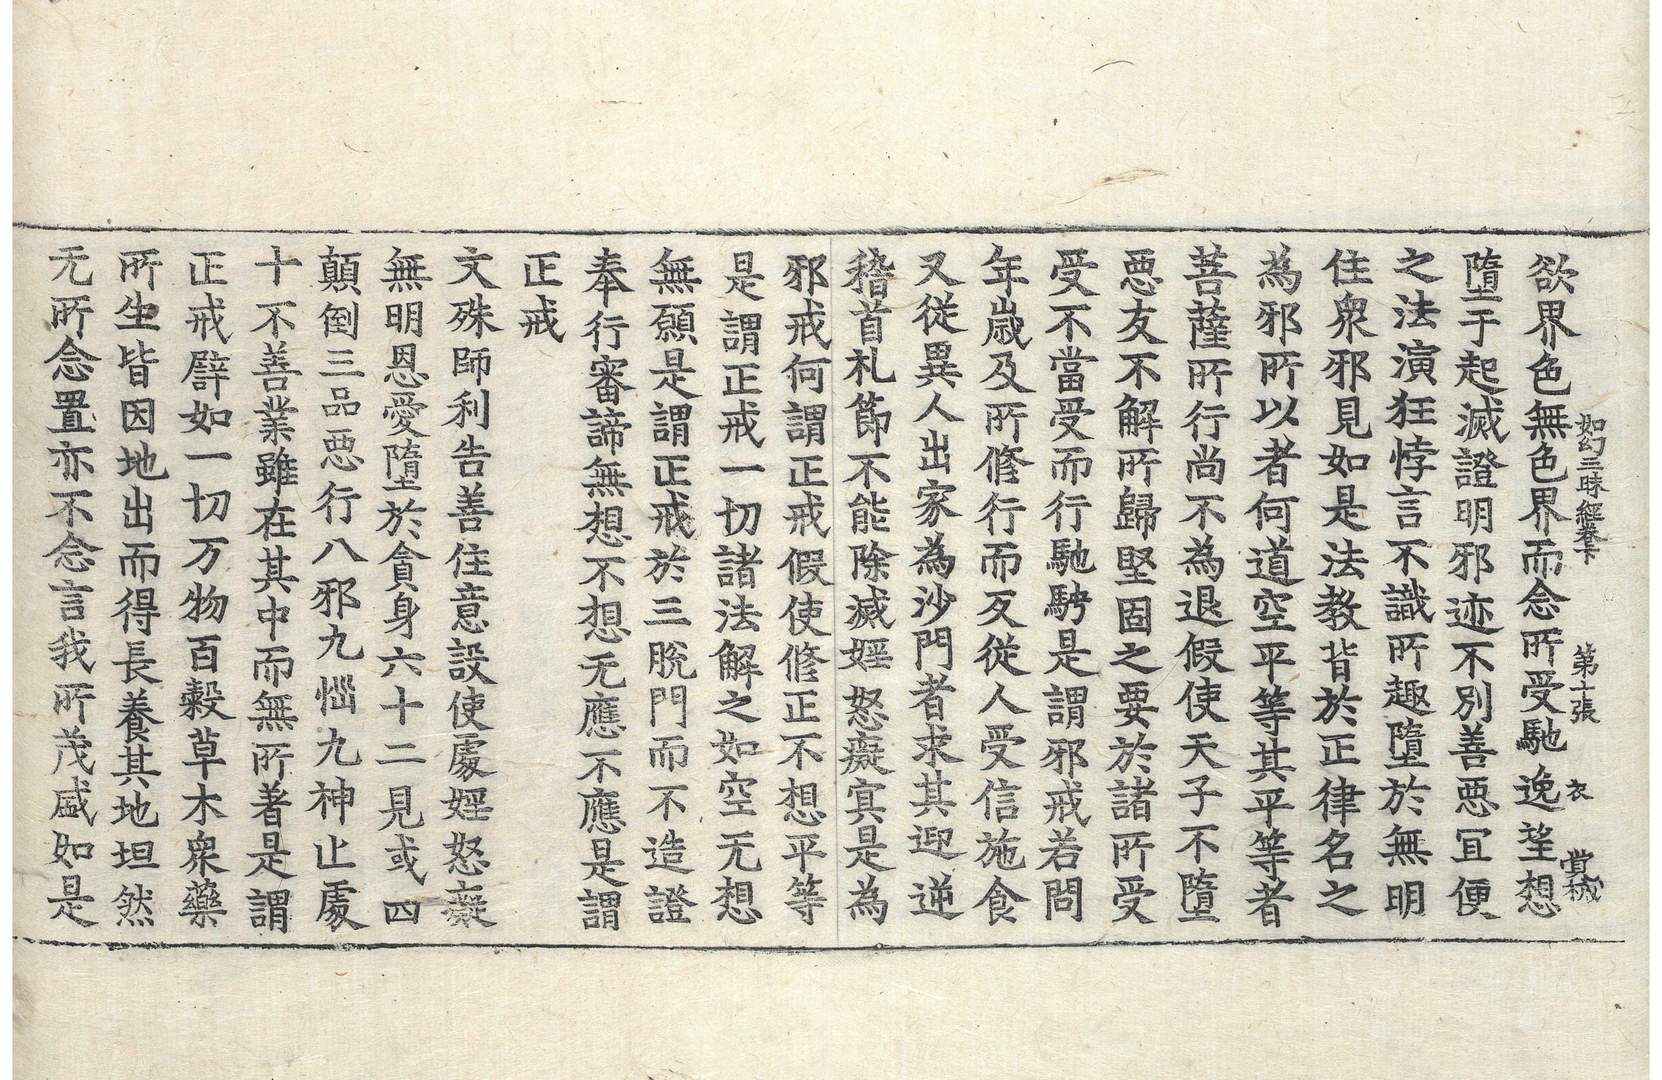 如幻三昧經卷下 第十張 衣
欲界色無色界而念所受馳逸望想
墮于起滅證明邪迹不別善惡冝便
之法演狂悖言不識所趣墮於無明
住衆邪見如是法教背於正律名之
為邪所以者何道空平等其平等者
菩薩所行尚不為退假使天子不墮
惡友不解所歸堅固之要於諸所受
受不當受而行馳騁是謂邪戒若問
年歲及所修行而反從人受信施食
又從異人出家為沙門者求其迎逆
稽首礼節不能除滅婬怒癡寘是為
邪戒何謂正戒假使修正不想平等
是謂正戒一切諸法解之如空无想
無願是謂正戒於三脫門而不造證
奉行審諦無想不想无應不應是謂
正戒
文殊師利告善住意設使處婬怒癡
無明恩愛墮於貪身六十二見或四
顛倒三品惡行八邪九惱九神止處
十不善業雖在其中而無所著是謂
正戒譬如一切万物百穀草木衆藥
所生皆因地出而得長養其地坦然
无所念置亦不念言我所茂盛如是